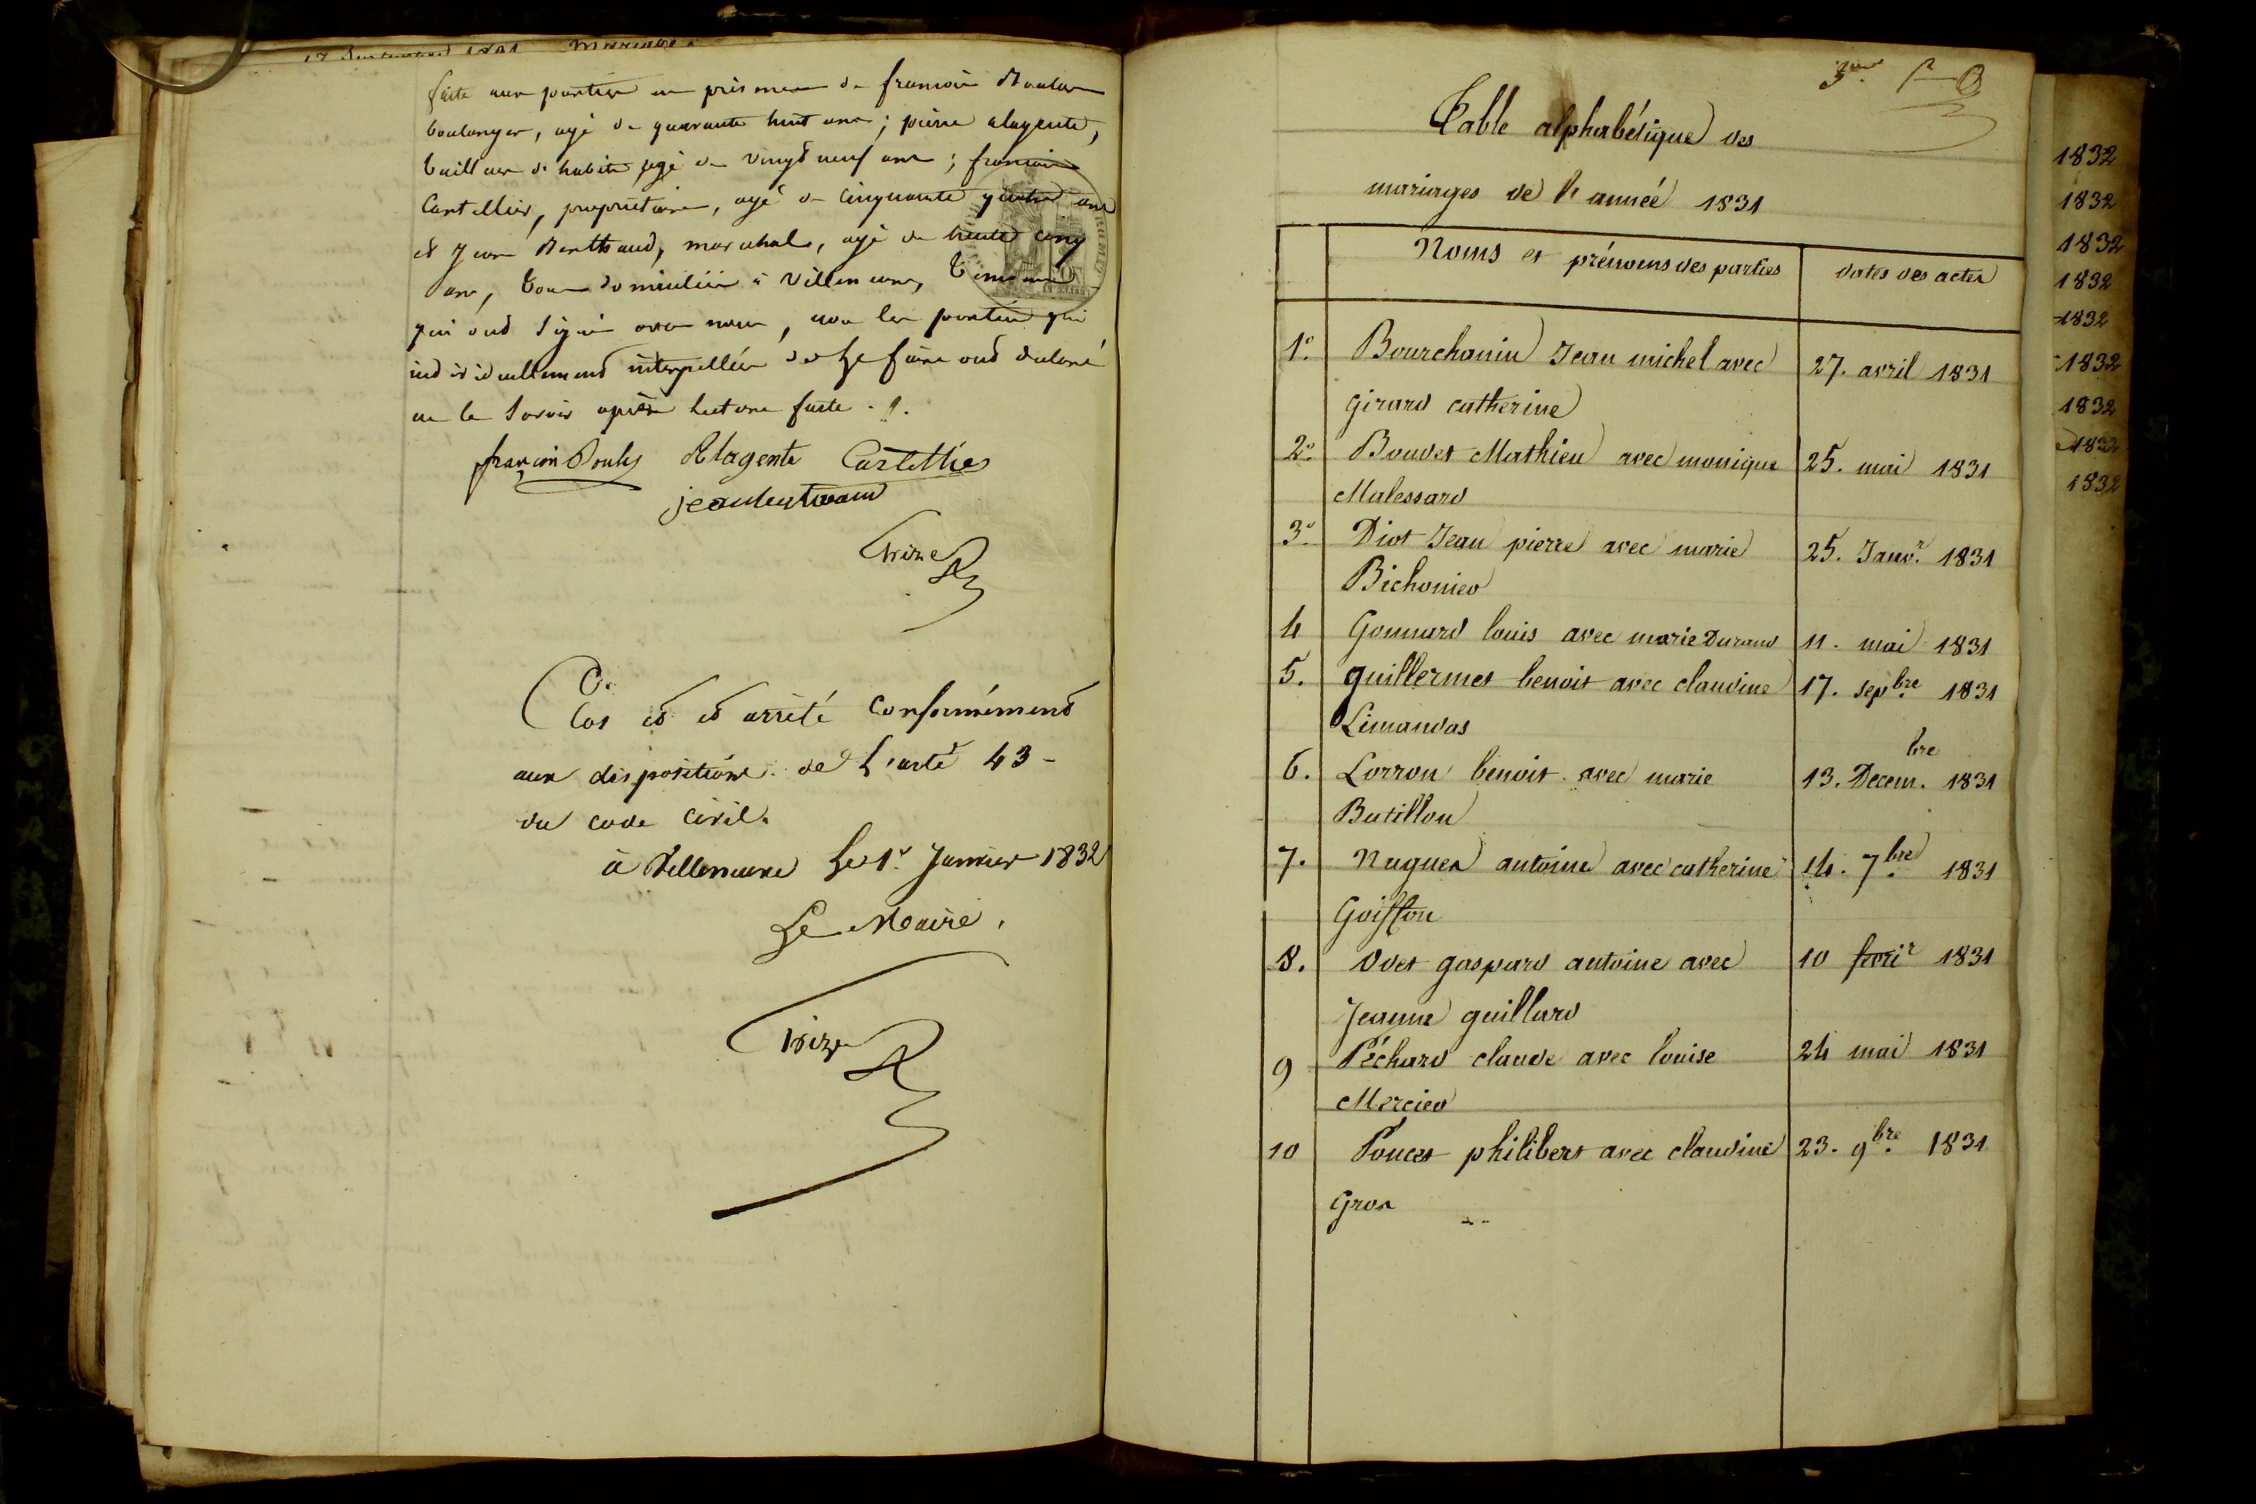 faite aux parties en présence de francois
boulanger, agé de quarante huit ans; pierre alagente,
tailleur d'habits, agé de vingt neuf ans; francois
Cartellier, propriétaire, agé de cinquante quatre ans
et Jean Berthaud, maréchal, agé de trente cinq
ans, tous domiciliés à Villemeure, temoins
qui ont signé avec nous, non les parties qui
individuellement interpellées de le faire ont declaré
ne le savoir après lecture faite.
françois Alagente Cartellier
Trize
Clos et arrêté conformément
aux dispositions de l'arte 43
du code civil.
à Le 1r Janvier 1832
Le Maire,
Trize
Table alphabétique des
mariages de l'année 1831
Noms et prénoms des parties dates des actes
1o. Bourchanin Jean michel avec 27. avril 1831
Girard catherine
2o. Bouvet Mathieu avec monique 25. mai 1831
Malessard
3o. Diot Jean pierre avec marie 25. Janvr. 1831
Bichonier
4 Gonnard louis avec marie Durand 11. mai 1831
5. guillermet benoit avec claudine 17. sepbre. 1831
Limandas
6. Lorron benoit avec marie 13. Decembre. 1831
Batillon
7. Nugues antoine avec catherine 14. 7bre. 1831
Goiffon
8. Ovet gaspard antoine avec 10 fevrir 1831
Jeanne guillard
9 Péchard claude avec louise 24 mai 1831
Mercier
10 Poncet philibert avec claudine 23. 9bre. 1831
Gros
1832
1832
1832
1832
1832
1832
1832
1832
1832